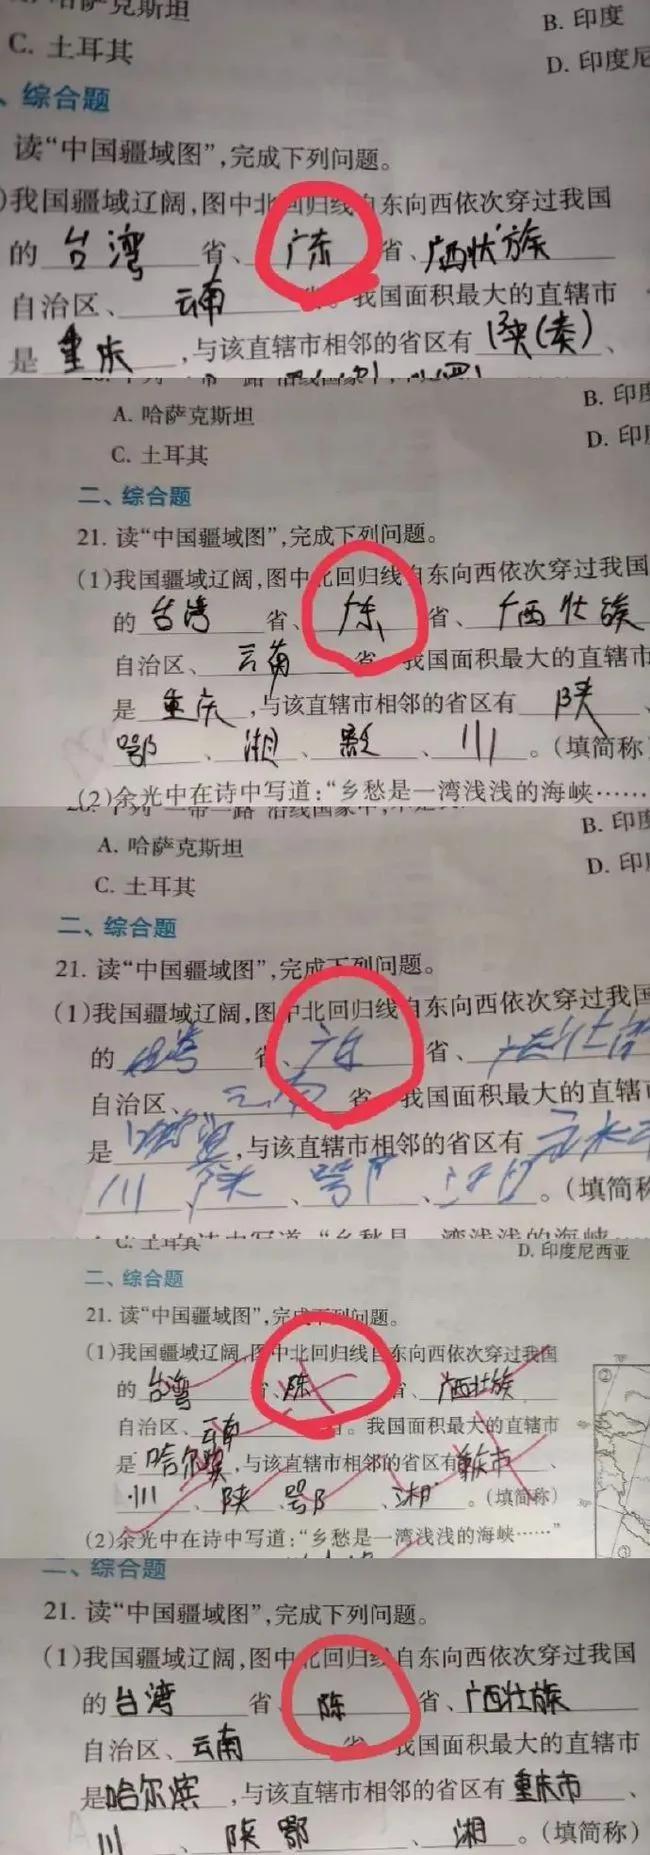 哈萨克斯坦
B. 印度
C. 土耳其
D. 印度尼
、综合题
读“中国疆域图”,完成下列问题。
)我国疆域辽阔,图中北回归线自东向西依次穿过我国
的 台湾 省、广东 省、广西状族
自治区、云南 省。我国面积最大的直辖市
是 重庆,与该直辖市相邻的省区有 陕(秦)、
A. 哈萨克斯坦
B. 印度
C. 土耳其
D. 印
二、综合题
21. 读“中国疆域图”,完成下列问题。
(1)我国疆域辽阔,图中北回归线自东向西依次穿过我国
的 台湾 省、广东 省、广西壮族
自治区、云南 省。我国面积最大的直辖市
是 重庆,与该直辖市相邻的省区有 陕、
鄂、湘、、川。(填简称
(2)余光中在诗中写道:“乡愁是一湾浅浅的海峡……
A. 哈萨克斯坦
B. 印度
C. 土耳其
D. 印
二、综合题
21. 读“中国疆域图”,完成下列问题。
(1)我国疆域辽阔,图中北回归线自东向西依次穿过我国
的 省、广东 省、
自治区、云南 省。我国面积最大的直辖市
是,与该直辖市相邻的省区有
川、陕、鄂、。(填简称
C. 土耳其
D. 印度尼西亚
二、综合题
21. 读“中国疆域图”,完成下列问题。
(1)我国疆域辽阔,图中北回归线自东向西依次穿过我国
的 台湾 省、陈 省、广西壮族
自治区、云南 省。我国面积最大的直辖市
是 哈尔滨,与该直辖市相邻的省区有 重庆市、
川、陕、鄂、湘。(填简称)
(2)余光中在诗中写道:“乡愁是一湾浅浅的海峡……”
二、综合题
21. 读“中国疆域图”,完成下列问题。
(1)我国疆域辽阔,图中北回归线自东向西依次穿过我国
的 台湾 省、陈 省、广西壮族
自治区、云南 省。我国面积最大的直辖市
是 哈尔滨,与该直辖市相邻的省区有 重庆市、
川、陕 鄂、湘。(填简称)